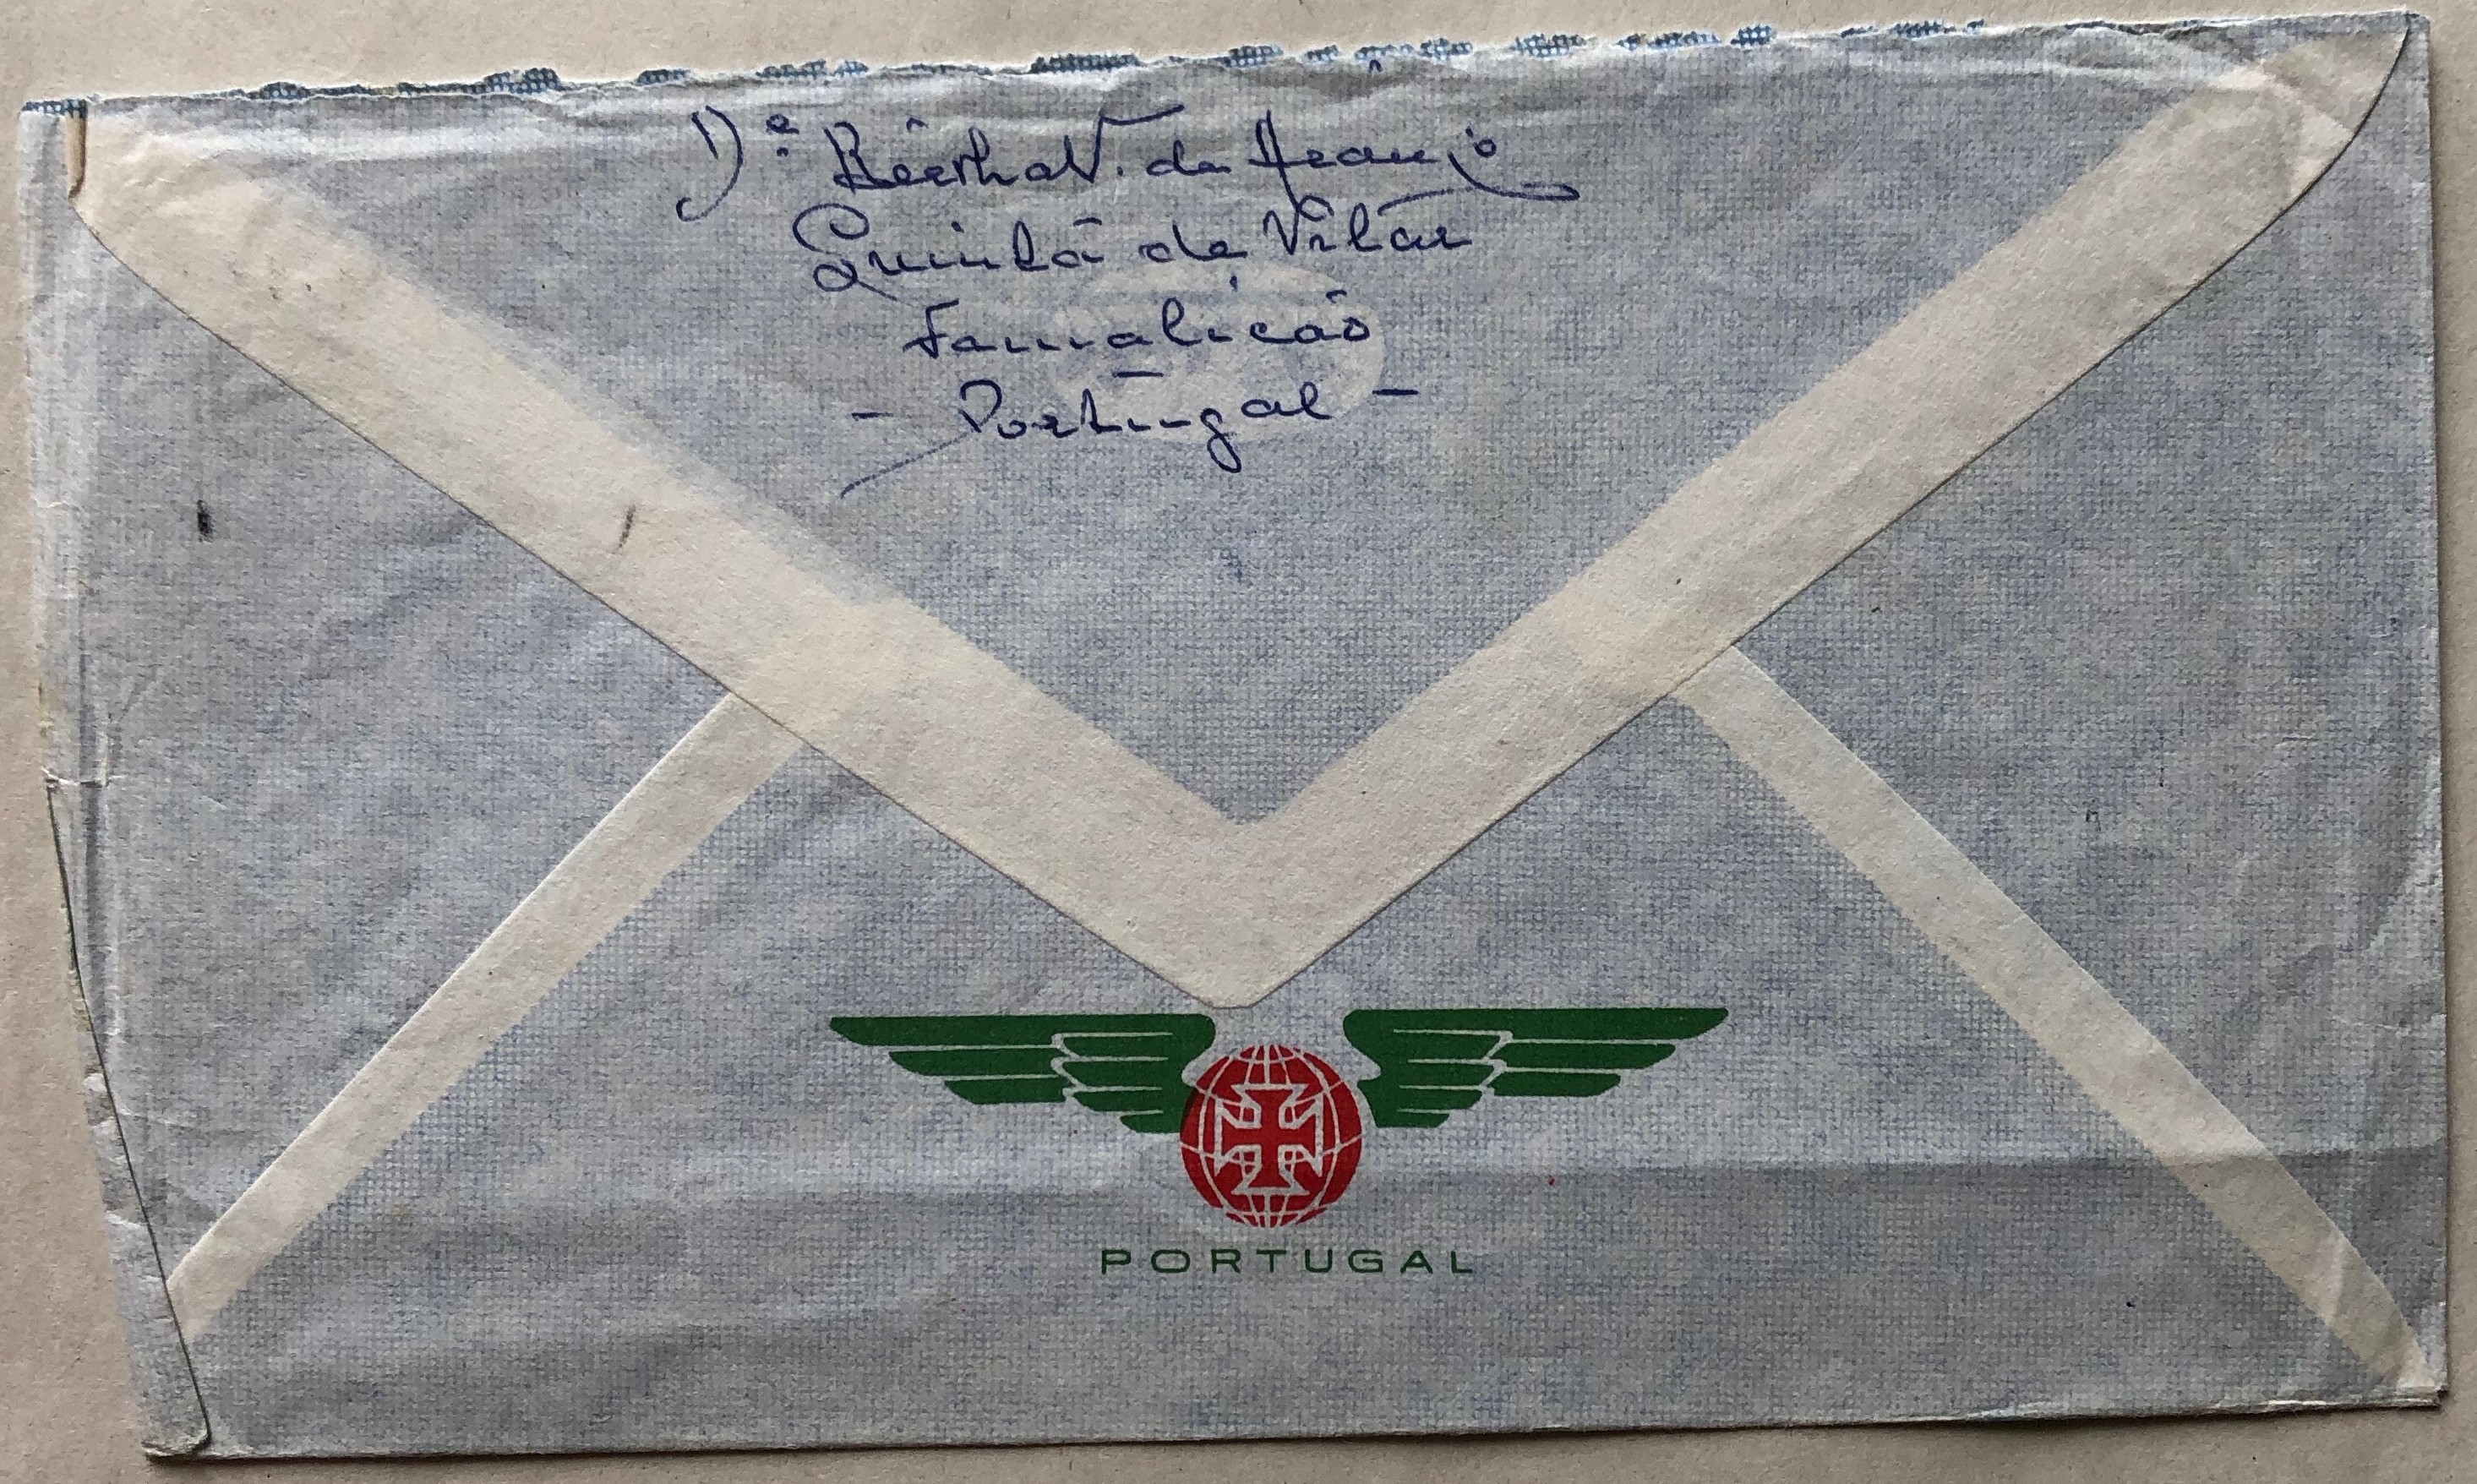 D.ª Bêrtha V. de Araujo
Quintã de Vilar
Famalicão
- Portugal -
PORTUGAL